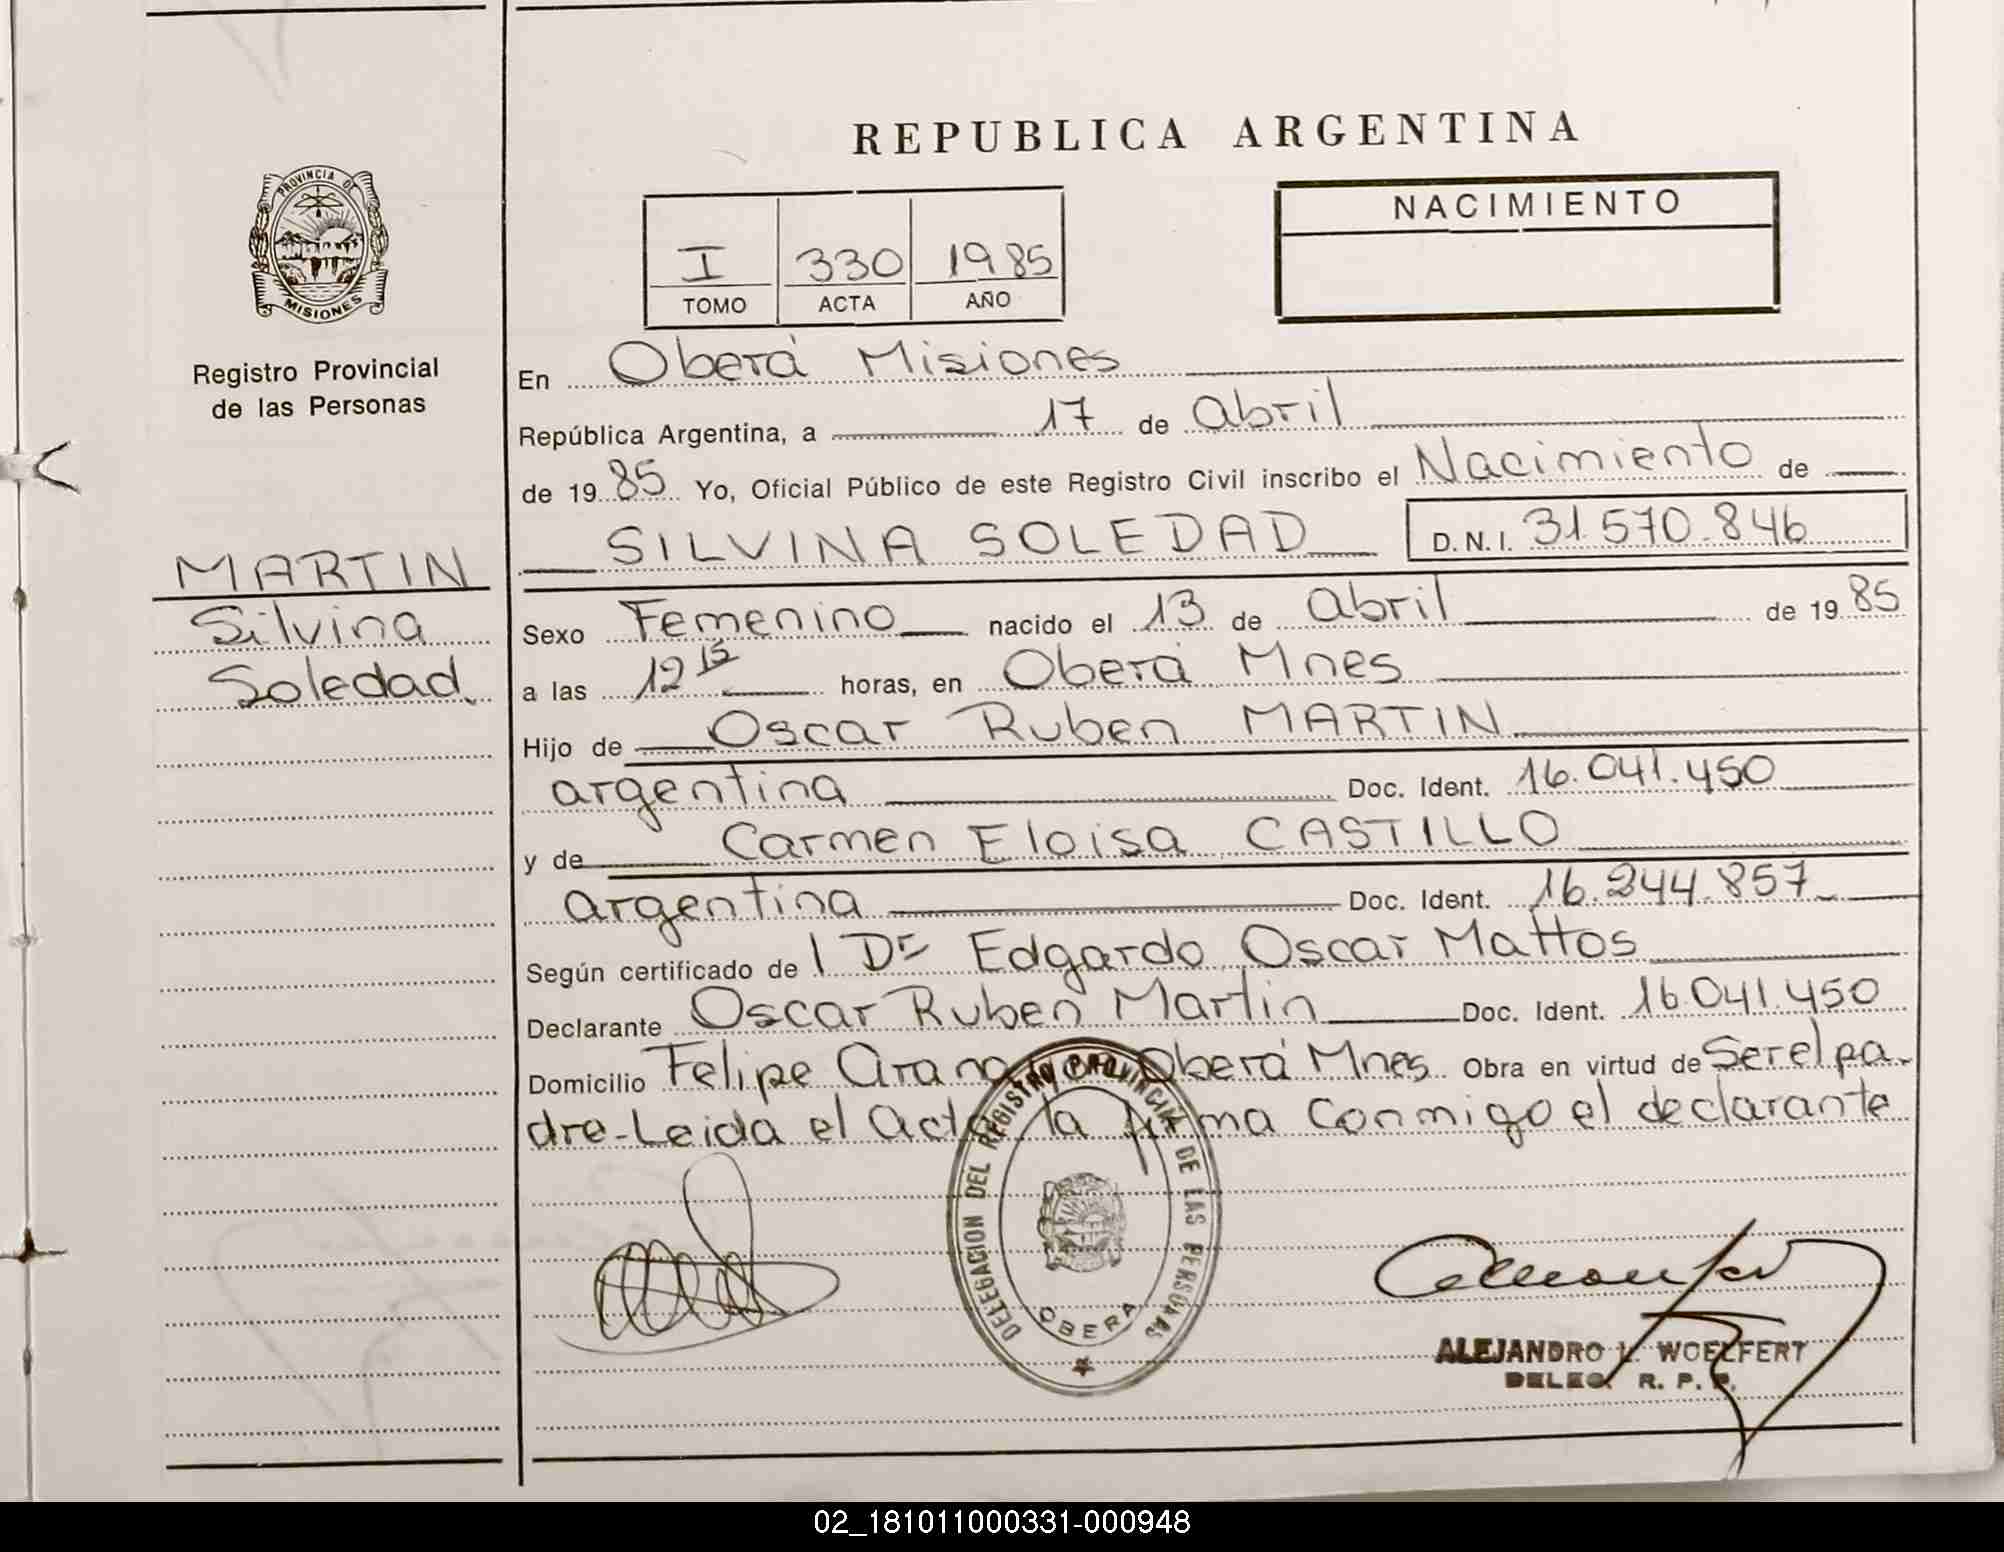 REPUBLICA ARGENTINA
PROVINCIA DE
MISIONES
Registro Provincial
de las Personas
MARTIN
Silvina
Soledad
I 330 1985
TOMO ACTA AÑO
NACIMIENTO
En Oberá Misiones
República Argentina, a 17 de abril
de 1985 Yo, Oficial Público de este Registro Civil inscribo el Nacimiento de
SILVINA SOLEDAD D.N.I. 31.570.846
Sexo Femenino nacido el 13 de abril de 1985
a las 12 15 horas, en Oberá Mnes
Hijo de Oscar Ruben MARTIN
argentina Doc. Ident. 16.041.450
y de Carmen Eloisa CASTILLO
argentina Doc. Ident. 16.244.857
Según certificado de l Dr Edgardo Oscar Mattos
Declarante Oscar Ruben Martin Doc. Ident. 16.041.450
Domicilio Felipe Oberá Mnes Obra en virtud de Ser el pa
dre-Leida el Acta, la firma conmigo el declarante
DELEGACION DEL REGISTRO PROVINCIAL DE LAS PERSONAS
OBERA
ALEJANDRO L. WOELFERT
DELEG. R. P. P.
02_181011000331-000948